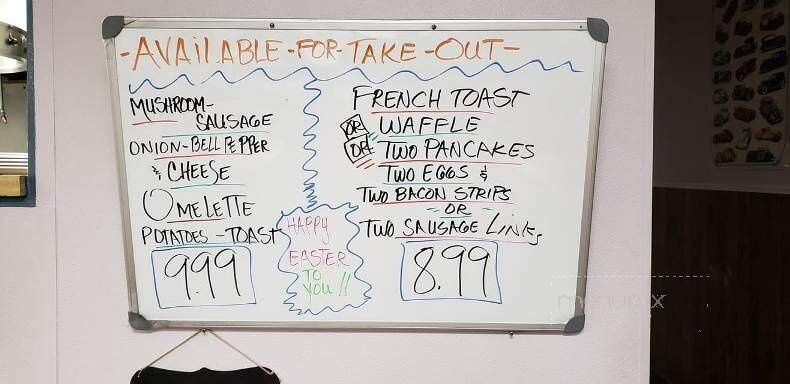 -AVAILABLE-FOR-TAKE-OUT-
MUSHROOM-
SAUSAGE
ONION-BELL PEPPER
& CHEESE
OMELETTE
POTATOES-TOAST
9.99
HAPPY
EASTER
TO
YOU!!
FRENCH TOAST
OR WAFFLE
OR TWO PANCAKES
TWO EGGS &
TWO BACON STRIPS
OR
TWO SAUSAGE LINKS
8.99